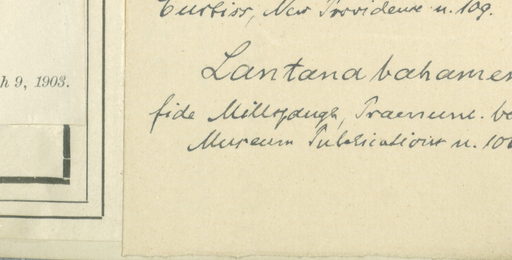 Curtiss, New Providence n. 109.
h 9, 1903.
Lantana bahamen
fide Millspaugh, Praenunc. ba
Museum Publications n. 106